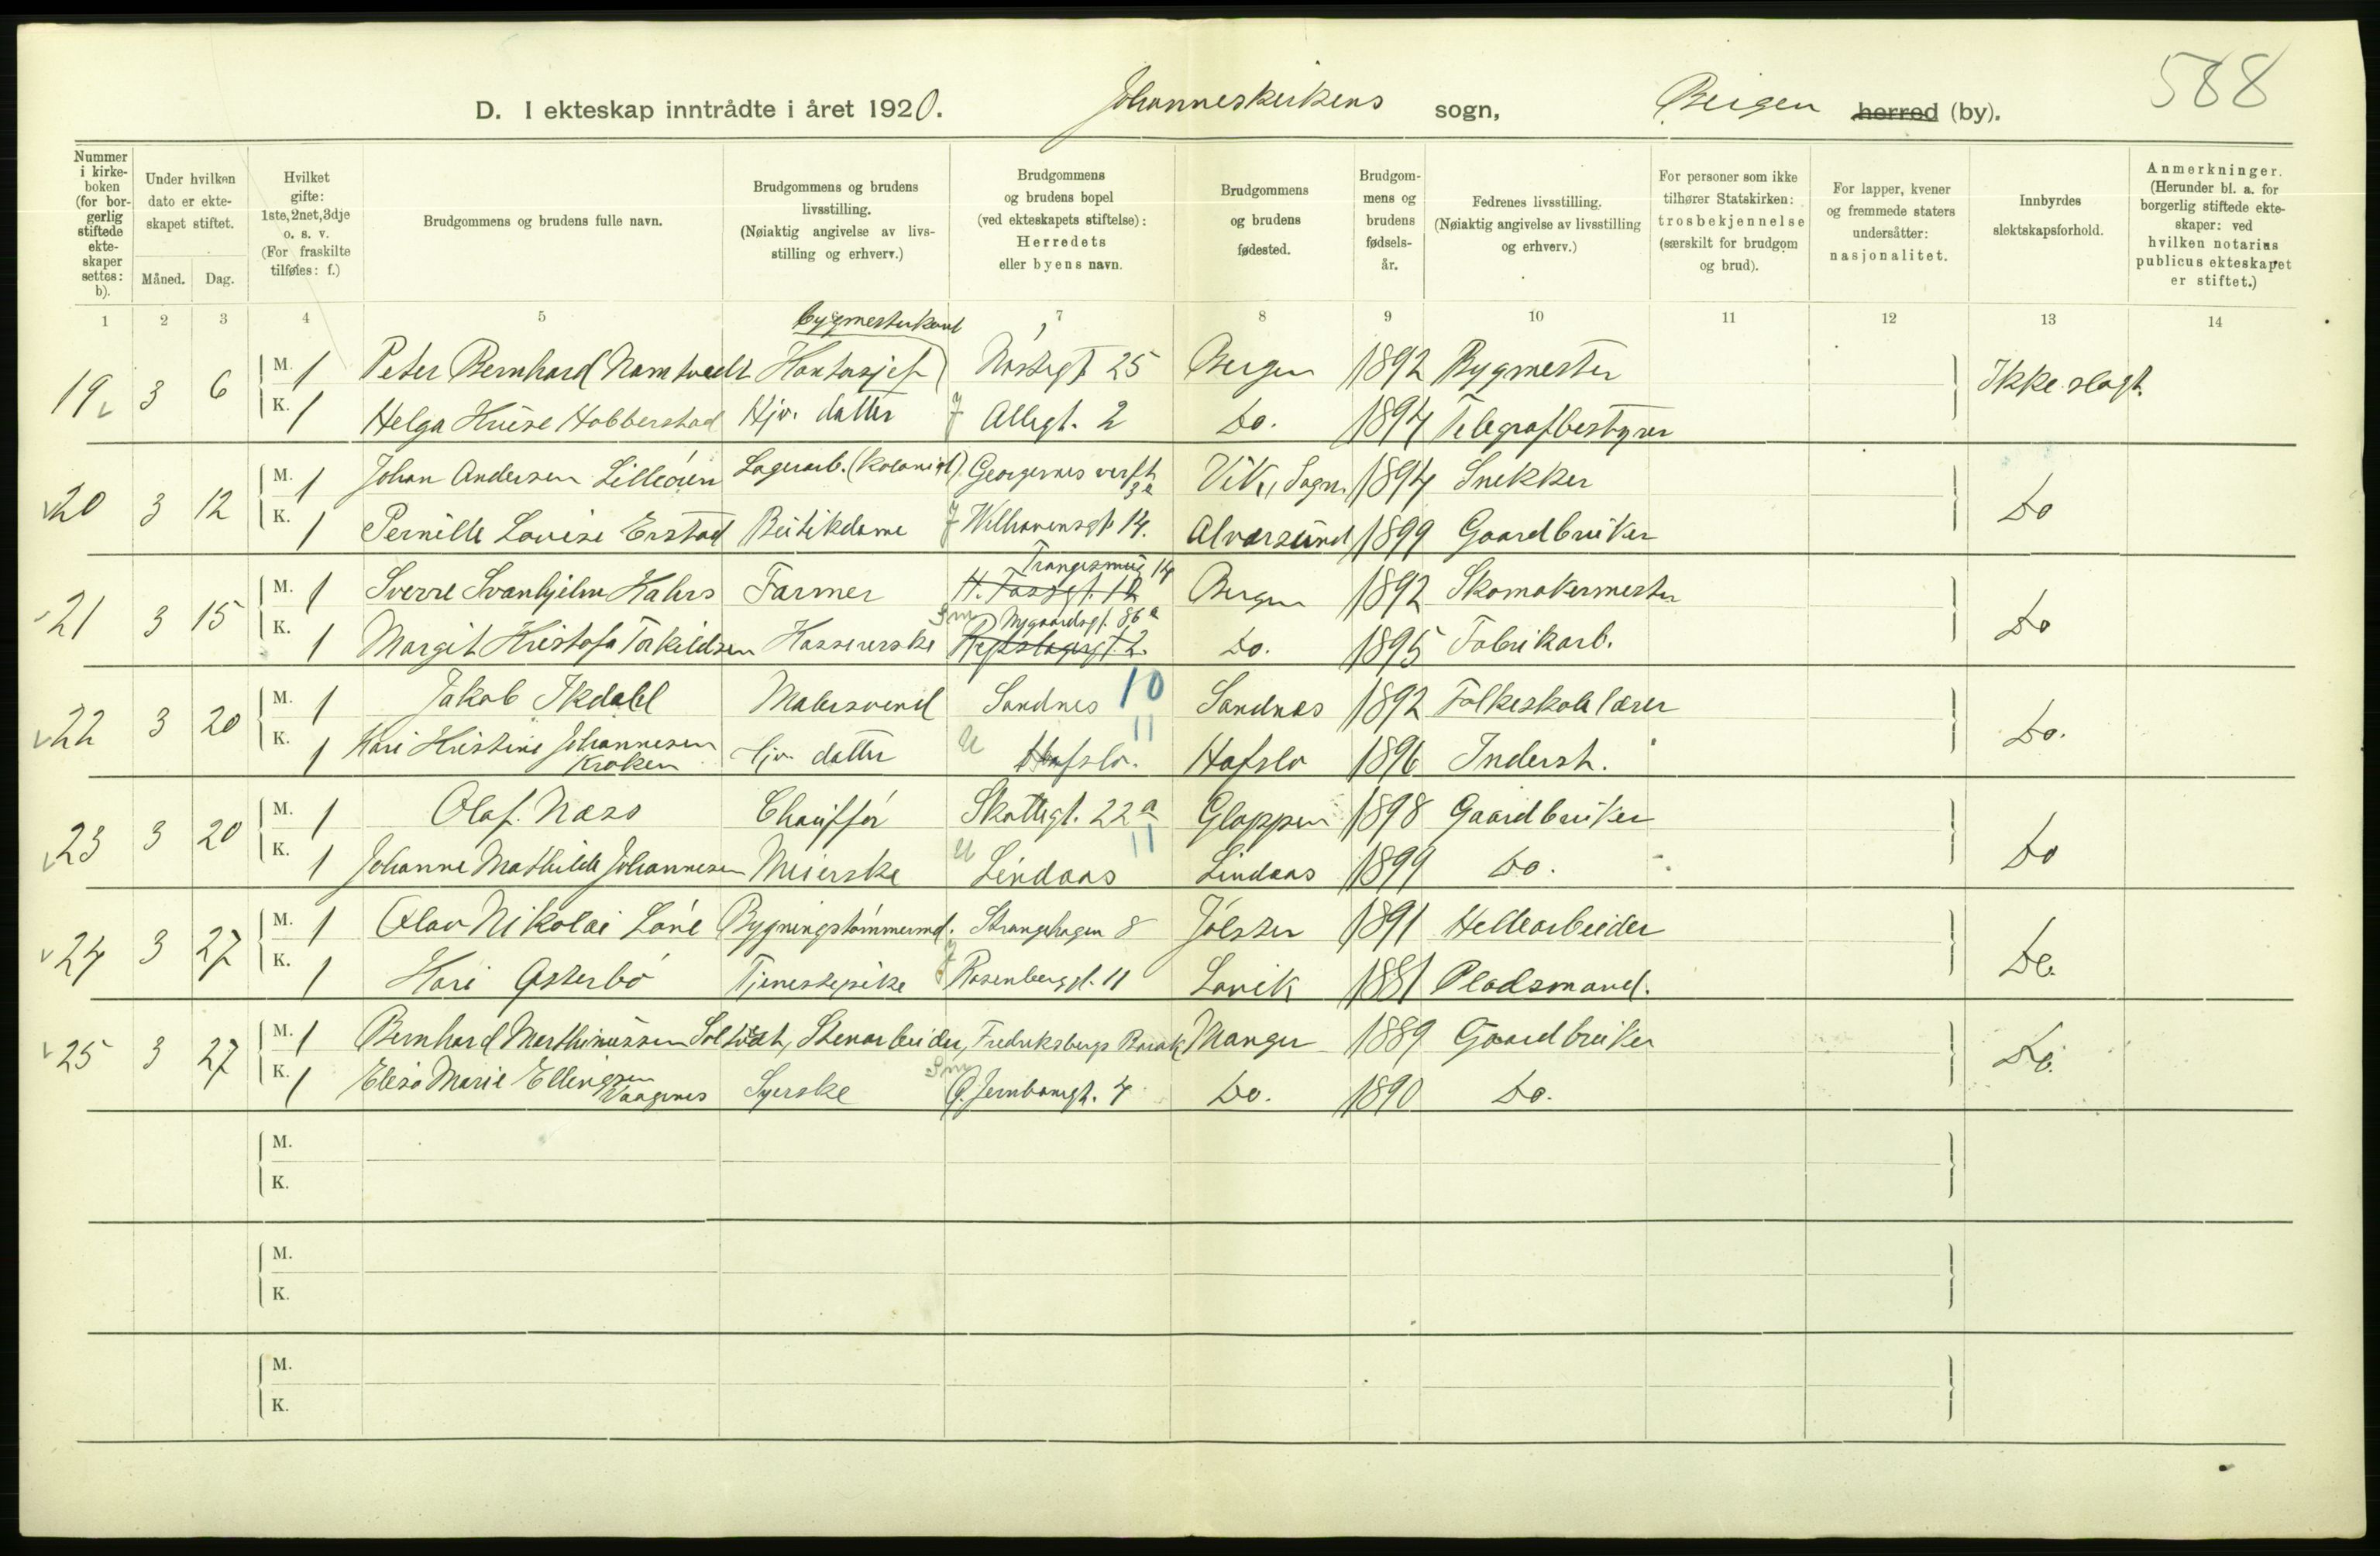 588
D. I ekteskap inntrådte i året 1920. Johanneskirkens sogn, Bergen herred (by).
Nummer i kirkeboken (for borgerlig stiftede ekteskaper settes: b).
Under hvilken dato er ekteskapet stiftet.
Måned. Dag.
Hvilket gifte: 1ste, 2net, 3dje o. s. v. (For fraskilte tilføies: f.)
Brudgommens og brudens fulle navn.
Brudgommens og brudens livsstilling. (Nøiaktig angivelse av livsstilling og erhverv.)
Brudgommens og brudens bopel (ved ekteskapets stiftelse): Herredets eller byens navn.
Brudgommens og brudens fødested.
Brudgommens og brudens fødselsår.
Fedrenes livsstilling. (Nøiaktig angivelse av livsstilling og erhverv.)
For personer som ikke tilhører Statskirken: trosbekjennelse (særskilt for brudgom og brud).
For lapper, kvener og fremmede staters undersåtter: nasjonalitet.
Innbyrdes slektskapsforhold.
Anmerkninger. (Herunder bl. a. for borgerlig stiftede ekteskaper: ved hvilken notarius publicus ekteskapet er stiftet.)
1 2 3 4 5 7 8 9 10 11 12 13 14
19 3 6 M. 1 Peter Bernhard Namtvedt Kontorsjef Nøstegt. 25 Bergen 1892 Bygmester Ikke slegt.
K. 1 Helga Kruse Hobberstad Hjv. datter Allegt. 2 Do. 1894 Telegrafbestyrer
20 3 12 M. 1 Johan Andersen Lilleøren Lagerarb. (kolonial) Georgernes verft 3a Vik, Sogn. 1894 Snekker Do
K. 1 Pernille Lovise Erstad Butikdame Welhavensgt. 14. Alversund 1899 Gaardbruker
Trangesmug 14
21 3 15 M. 1 Sverre Svanhjelm Hahrs Farmer H. Fossgt. 12 Bergen 1892 Skomakermester Do
Nygaardsgt. 86a
K. 1 Margit Kristofa Torkildsen Kassererske Repslagergt. 2. Do. 1895 Fabrikarb.
22 3 20 M. 1 Jakob Skdahl Malersvend Sandnes 10 Sandnes 1892 Folkeskolelærer Do.
K. 1 Kari Kristine Johannesen Kroken Hjv. datter U Hafslo. 11 Hafslo 1896 Inderst.
23 3 20 M. 1 Olaf Næss Chauffør Skottegt. 22a Gloppen 1898 Gaardbruker Do
K. 1 Johanne Mathilde Johannesen Meierske U Lindaas 11 Lindaas 1899 Do.
24 3 27 M. 1 Olav Nikolai Løne Bygningstømmermd. Strangehagen 8 Jølster 1891 Hellearbeider Do.
K. 1 Kari Østerbø Tjenestepike Rosenberggt. 11 Lavik 1881 Pladsmand.
25 3 27 M. 1 Bernhard Marthinussen Soltvedt, Stenarbeider, Fredriksbergs Barak Manger 1889 Gaardbruker Do.
K. 1 Elisa Marie Ellingsen Vaagenes Syerske G. Jernbanegt. 4 Do. 1890 Do.
M.
K.
M.
K.
M.
K.